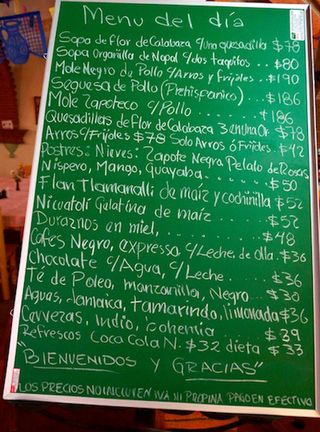 Menu del día
Sopa de flor de Calabaza c/una quesadilla $78
Sopa Organilla de Nopal c/dos taquitos.. $80
Mole Negro de Pollo c/Arros y Frijoles.. $190
Seguesa de Pollo (Prehispanico)... $186
Mole Zapoteco c/Pollo....... $186
Quesadillas de flor de Calabaza 3 en una Or $78
Arros c/Frijoles $78 Solo Arros ó Frijoles.. $42
Postres: Nieves: Zapote Negra Petalo de Rosas
Nispero, Mango, guayaba....... $50
Flan Tlamanalli de maíz y cochinilla $52
Nicuatoli Gelatina de maíz........ $52
Duraznos en miel,......... $48
Cafes Negro, expresso, c/Leche, de olla. $36
Chocolate c/Agua, c/Leche...... $36
Té de Poleo, manzanilla, Negro... $30
Aguas, Jamaica, tamarindo, limonada $36
Cervezas, Indio, bohemia $39
Refrescos Coca Cola N. $32 dieta $33
"BIENVENIDOS Y GRACIAS"
LOS PRECIOS NO INCLUYEN IVA NI PROPINA PAGO EN EFECTIVO